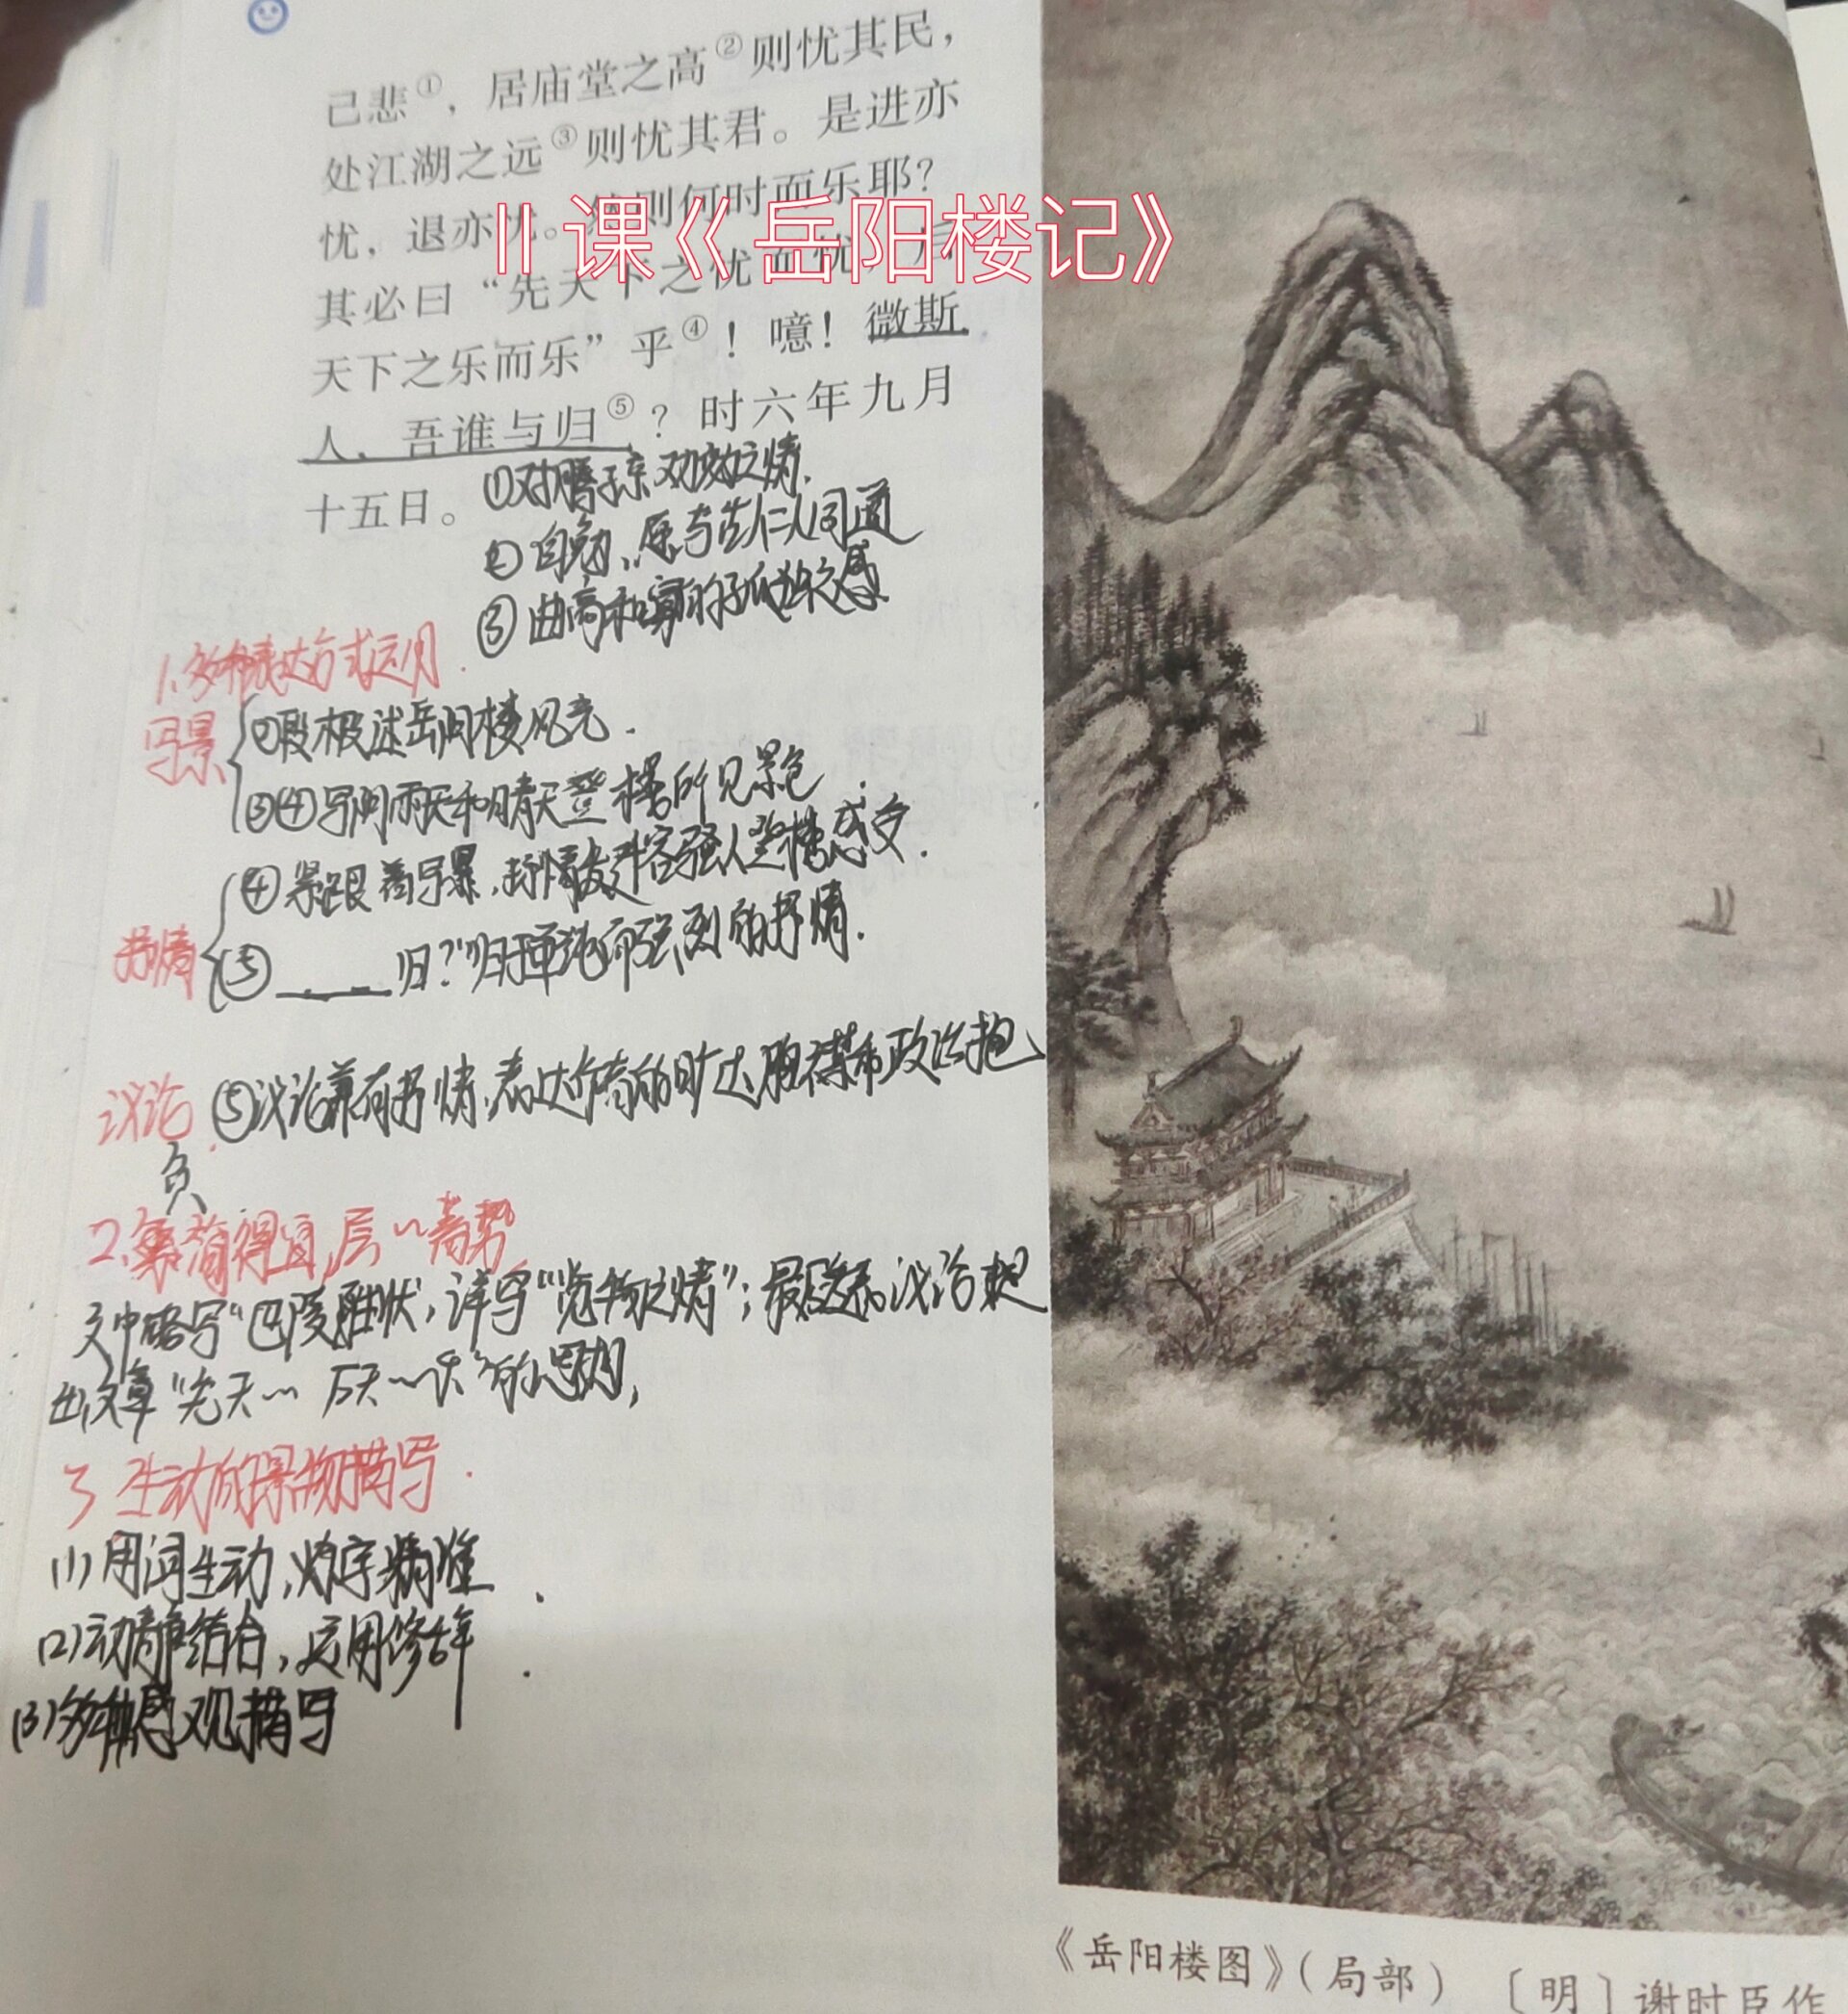 己悲①，居庙堂之高②则忧其民，
处江湖之远③则忧其君。是进亦
忧，退亦忧。然则何时而乐耶？
其必曰“先天下之忧而忧，后
天下之乐而乐”乎④！噫！微斯
人，吾谁与归⑤？时六年九月
十五日。
11课《岳阳楼记》
①对滕子京劝勉之情.
② 自勉,愿与古仁人同道
③ 曲高和寡的孤独之感.
1.多种表达方式运用.
写景
②段极述岳阳楼风光.
③④写阴雨天和晴天登楼所见景色.
抒情
④紧跟着写景,抒情迁客骚人登楼感受.
⑤ 归?”归于更强烈的抒情.
议论
⑤议论兼有抒情,表达作者的旷达胸襟和政治抱
负
2.繁简得宜,层~蓄势
文中略写“巴陵胜状”,详写“览物之情”;最后议论
出文章“先天~ 后天~乐”的思想,
3 生动的景物描写.
(1)用词生动,炼字精准.
(2)动静结合,运用修辞.
(3)多种感观描写
《岳阳楼图》（局部）〔明〕谢时臣作